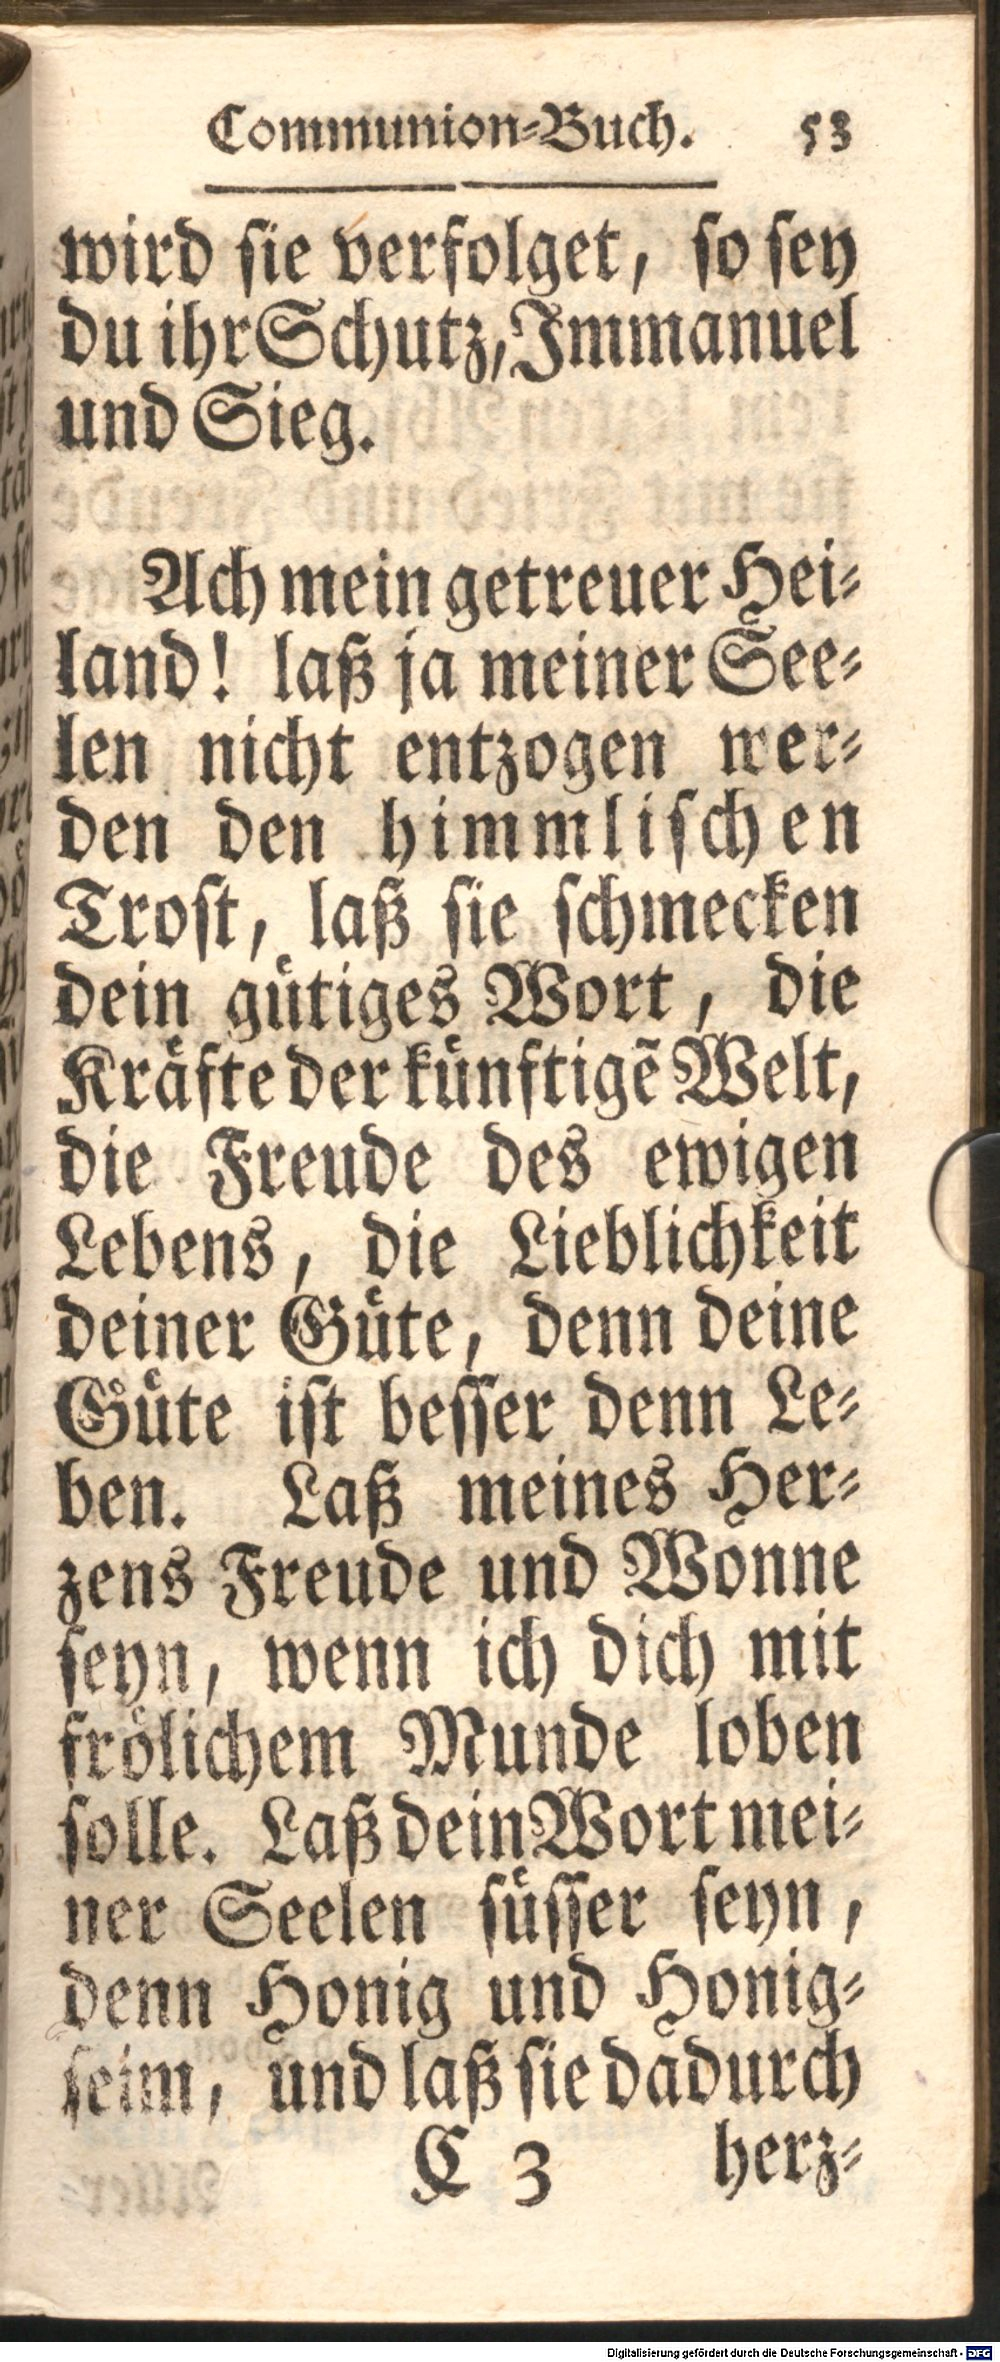 Communion-Buch. 53
wird sie verfolget, so sey
du ihr Schutz, Immanuel
und Sieg.
Ach mein getreuer Hei-
land! laß ja meiner See-
len nicht entzogen wer-
den den himmlischen
Trost, laß sie schmecken
dein gütiges Wort, die
Kräfte der künftigẽ Welt,
die Freude des ewigen
Lebens, die Lieblichkeit
deiner Güte, denn deine
Güte ist besser denn Le-
ben. Laß meines Her-
zens Freude und Wonne
seyn, wenn ich dich mit
frölichem Munde loben
solle. Laß dein Wort mei-
ner Seelen süsser seyn,
denn Honig und Honig-
seim, und laß sie dadurch
C 3 herz-
Digitalisierung gefördert durch die Deutsche Forschungsgemeinschaft - DFG